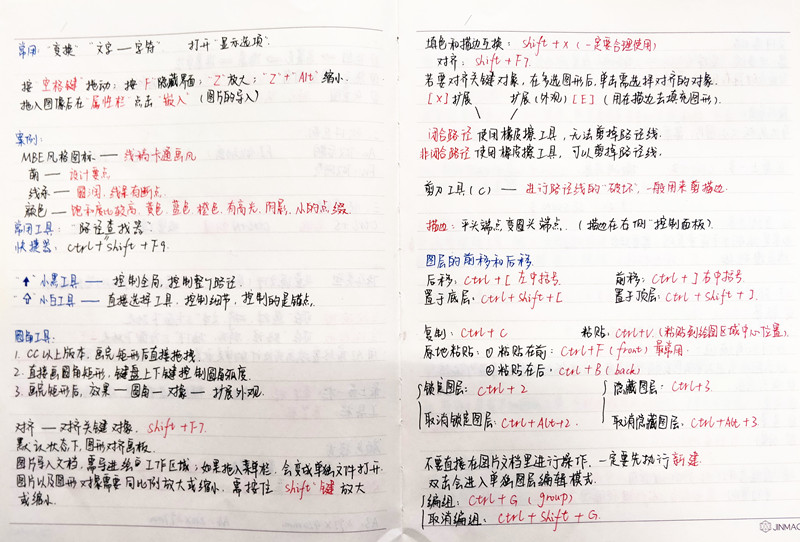 常用: "变换" "文字—字符" 打开"显示选项".
按"空格键"拖动; 按"F"隐藏界面; "Z"放大; "Z"+"Alt"缩小.
拖入图像后在"属性栏"点击"嵌入" (图片的导入)
案例:
MBE风格图标 — 线稿卡通画风
前 — 设计要点
线条 — 圆润, 线条有断点.
颜色 — 饱和度比较高, 黄色, 蓝色, 橙色, 有高光, 阴影, 小的点缀
常用工具: "路径查找器"
快捷键: ctrl+shift+F9.
"↑"小黑工具 — 控制全局, 控制整个路径.
"⇧"小白工具 — 直接选择工具, 控制细节, 控制的是锚点.
圆角工具:
1. CC以上版本, 画完矩形后直接拖拽.
2. 直接画圆角矩形, 键盘上下键控制圆角弧度.
3. 画完矩形后, 效果—圆角—对象—扩展外观.
对齐 — 对齐关键对象. shift+F7.
默认状态下, 图形对齐画板.
图片导入文档, 需导进绘图工作区域; 如果拖入菜单栏, 会变成单独文件打开.
图片以及图形对象需要同比例放大或缩小, 需按住"shift"键放大
或缩小.
填色和描边互换: shift+x (一定要合理使用)
对齐: shift+F7.
若要对齐关键对象, 在多选图形后, 单击需选择对齐的对象.
[X]扩展 扩展(外观)[E] (用在描边去填充图形).
闭合路径使用橡皮擦工具, 无法剪掉路径线.
非闭合路径使用橡皮擦工具, 可以剪掉路径线.
剪刀工具(C) — 进行路径线的"破坏", 一般用来剪描边.
描边: 平头端点变圆头端点. (描边在右侧"控制面板")
图层的前移和后移
后移: ctrl+[ 左中括号 前移: ctrl+] 右中括号.
置于底层: ctrl+shift+[ 置于顶层: ctrl+shift+].
复制: ctrl+C 粘贴: ctrl+V. (粘贴到绘图区域中心位置)
原地粘贴: ①粘贴在前: ctrl+F (front) 最常用
②粘贴在后: ctrl+B (back)
锁定图层: ctrl+2 隐藏图层: ctrl+3.
取消锁定图层: ctrl+Alt+2. 取消隐藏图层: ctrl+Alt+3.
不要直接在图片文档里进行操作, 一定要先执行新建.
双击会进入单独图层编辑模式.
编组: ctrl+G (group)
取消编组: ctrl+shift+G.
JINMAO